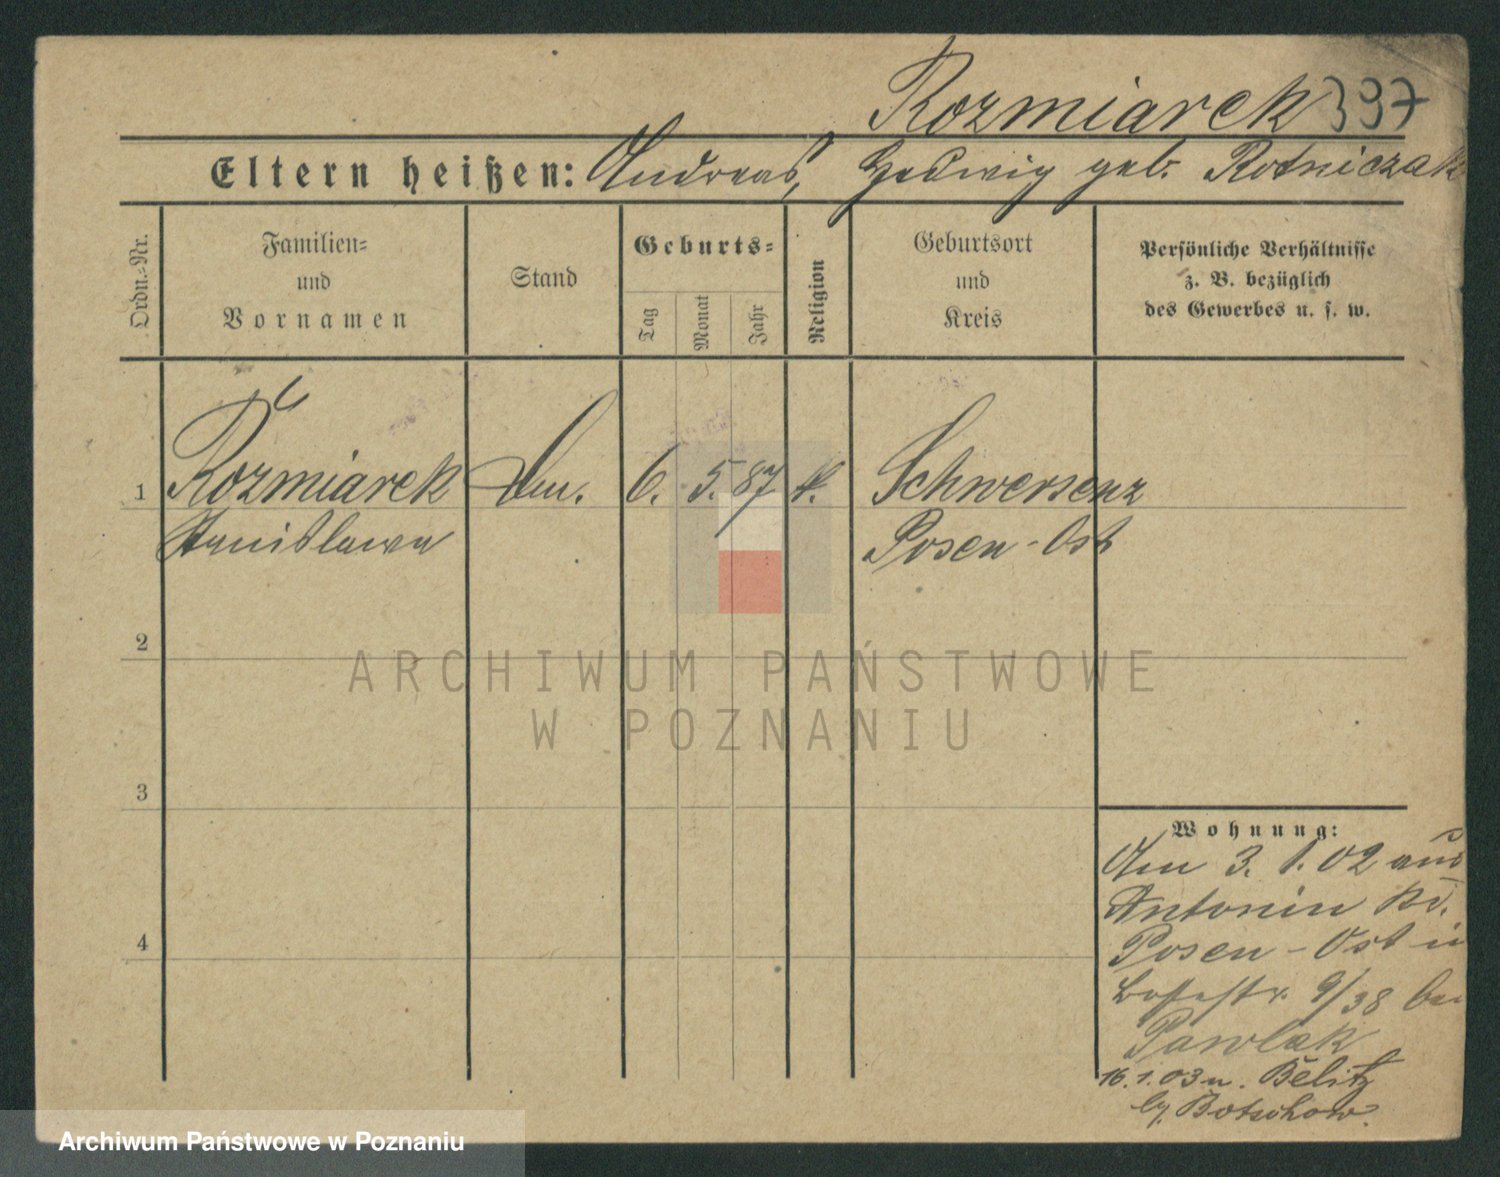 Rozmiarek 397
Eltern heißen: Andreas, Hedwig geb. Rotniczak
Ordn.-Nr.
Familien-
und
Vornamen
Stand
Geburts-
Tag
Monat
Jahr
Religion
Geburtsort
und
Kreis
Persönliche Verhältnisse
z. B. bezüglich
des Gewerbes u. s. w.
1 Rozmiarek 6. 5. 87 k. Schwersenz
Stanislawa Posen-Ost
2
3
4
ARCHIWUM PAŃSTWOWE
W POZNANIU
Wohnung:
Am 3. 1. 02 aus
Antonin Kr.
Posen-Ost in
9/38 bei
Pawlak
16.1.03 n. Belitz
b/ Botschow.
Archiwum Państwowe w Poznaniu